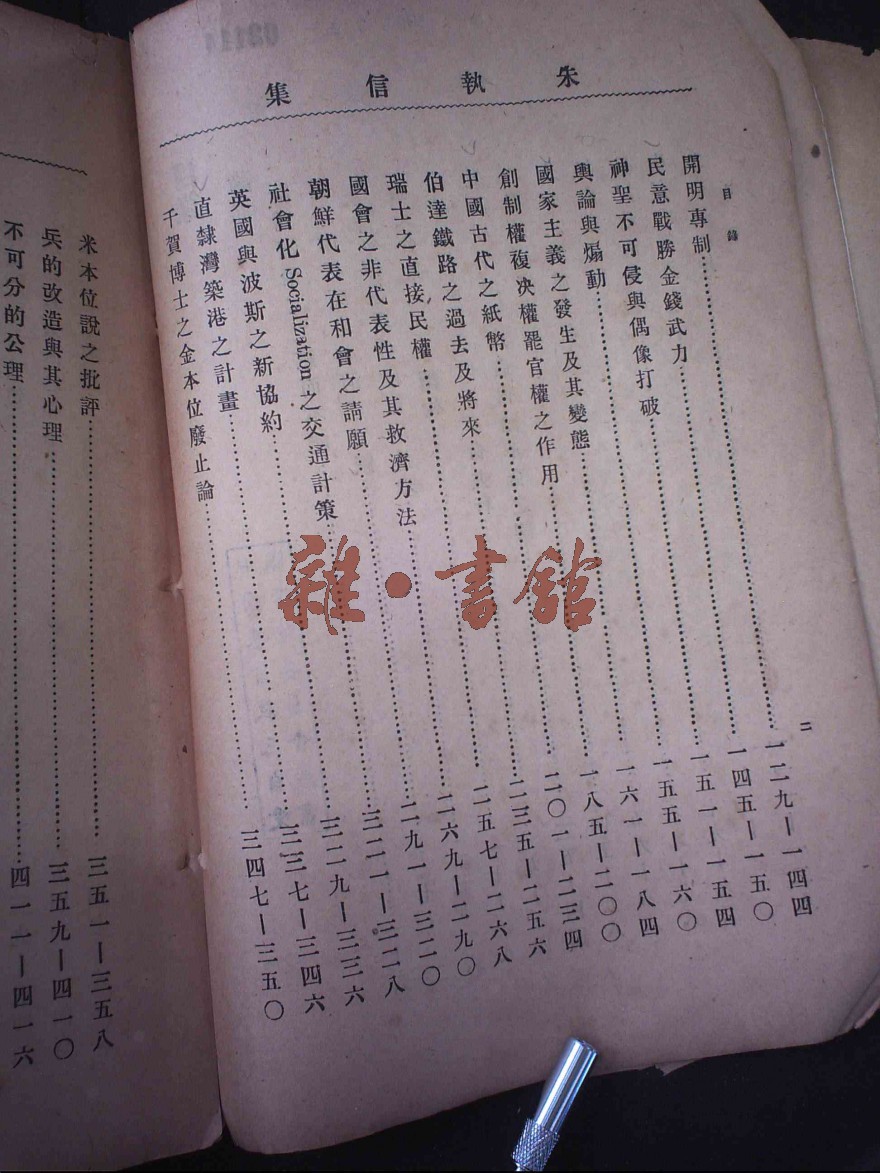 朱執信集
目錄
二
開明專制……一二九—一四四
民意戰勝金錢武力……一四五—一五〇
神聖不可侵與偶像打破……一五一—一五四
輿論與煽動……一五五—一六〇
國家主義之發生及其變態……一六一—一八四
創制權複决權罷官權之作用……一八五—二〇〇
中國古代之紙幣……二〇一—二三四
伯達鐵路之過去及將來……二三五—二五六
瑞士之直接民權……二五七—二六八
國會之非代表性及其救濟方法……二六九—二九〇
朝鮮代表在和會之請願……二九一—三二〇
社會化 Socialization 之交通計策……三二一—三二八
英國與波斯之新協約……三二九—三三六
直隸灣築港之計畫……三三七—三四六
千賀博士之金本位廢止論……三四七—三五〇
米本位說之批評……三五一—三五八
兵的改造與其心理……三五九—四一〇
不可分的公理……四一一—四一六
雜·書館